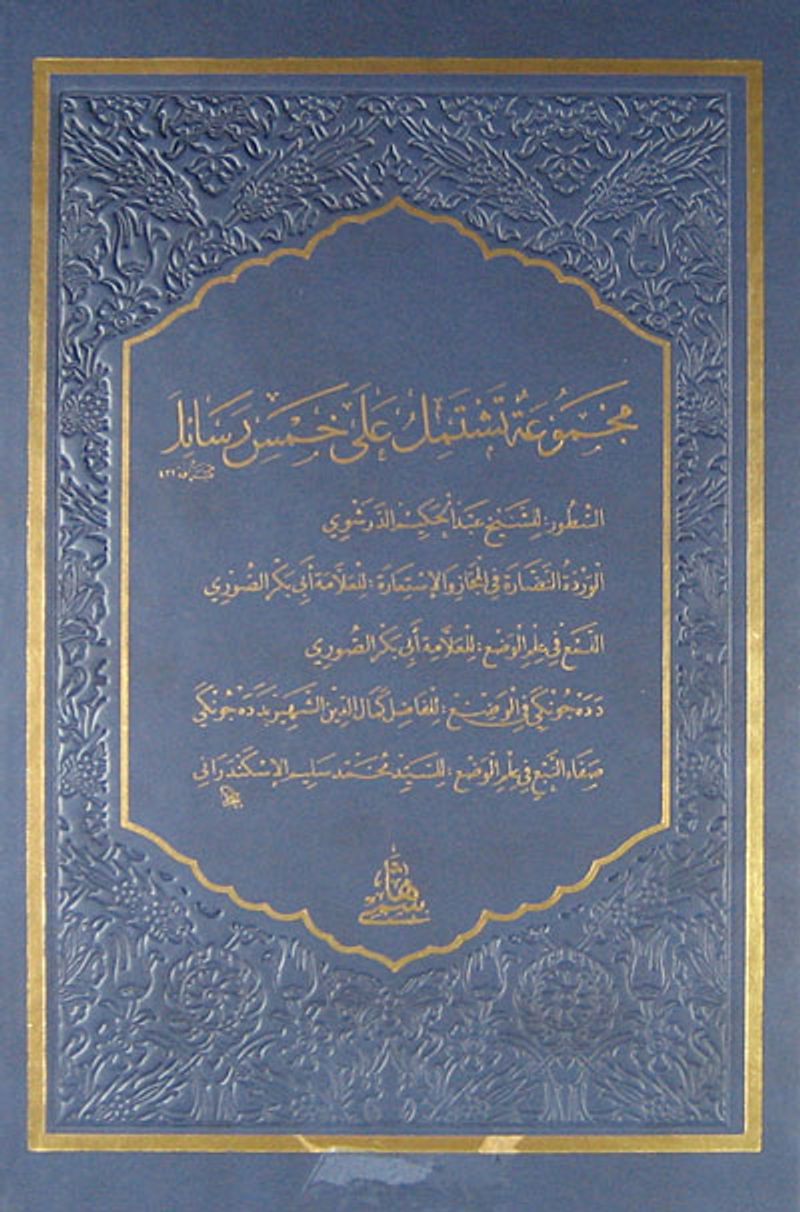 مَجْمُوعَةٌ تَشْتَمِلُ عَلَى خَمْسِ رَسَائِلَ
السُّطُور: لِلشَّيْخِ عَبْدِ الْحَكِيمِ الدَّرْشَوِي
الْوَرْدَةُ النَّضَّارَة فِي الْمَجَازِ وَالْاِسْتِعَارَة: لِلْعَلَّامَة أَبِي بَكْر الصُّورِي
فِي عِلْمِ الْوَضْع: لِلْعَلَّامَةِ أَبِي بَكْر الصُّورِي
دَدَه جُونْكِي فِي الْوَضْع: لِلْفَاضِل كَمَال الدِّين الشَّهِير بِدَدَه جُونْكِي
صَفَاء النَّبْعِ فِي عِلْمِ الْوَضْع: لِلسَّيِّد مُحَمَّد سَلِيم الْإِسْكَنْدَرَانِي